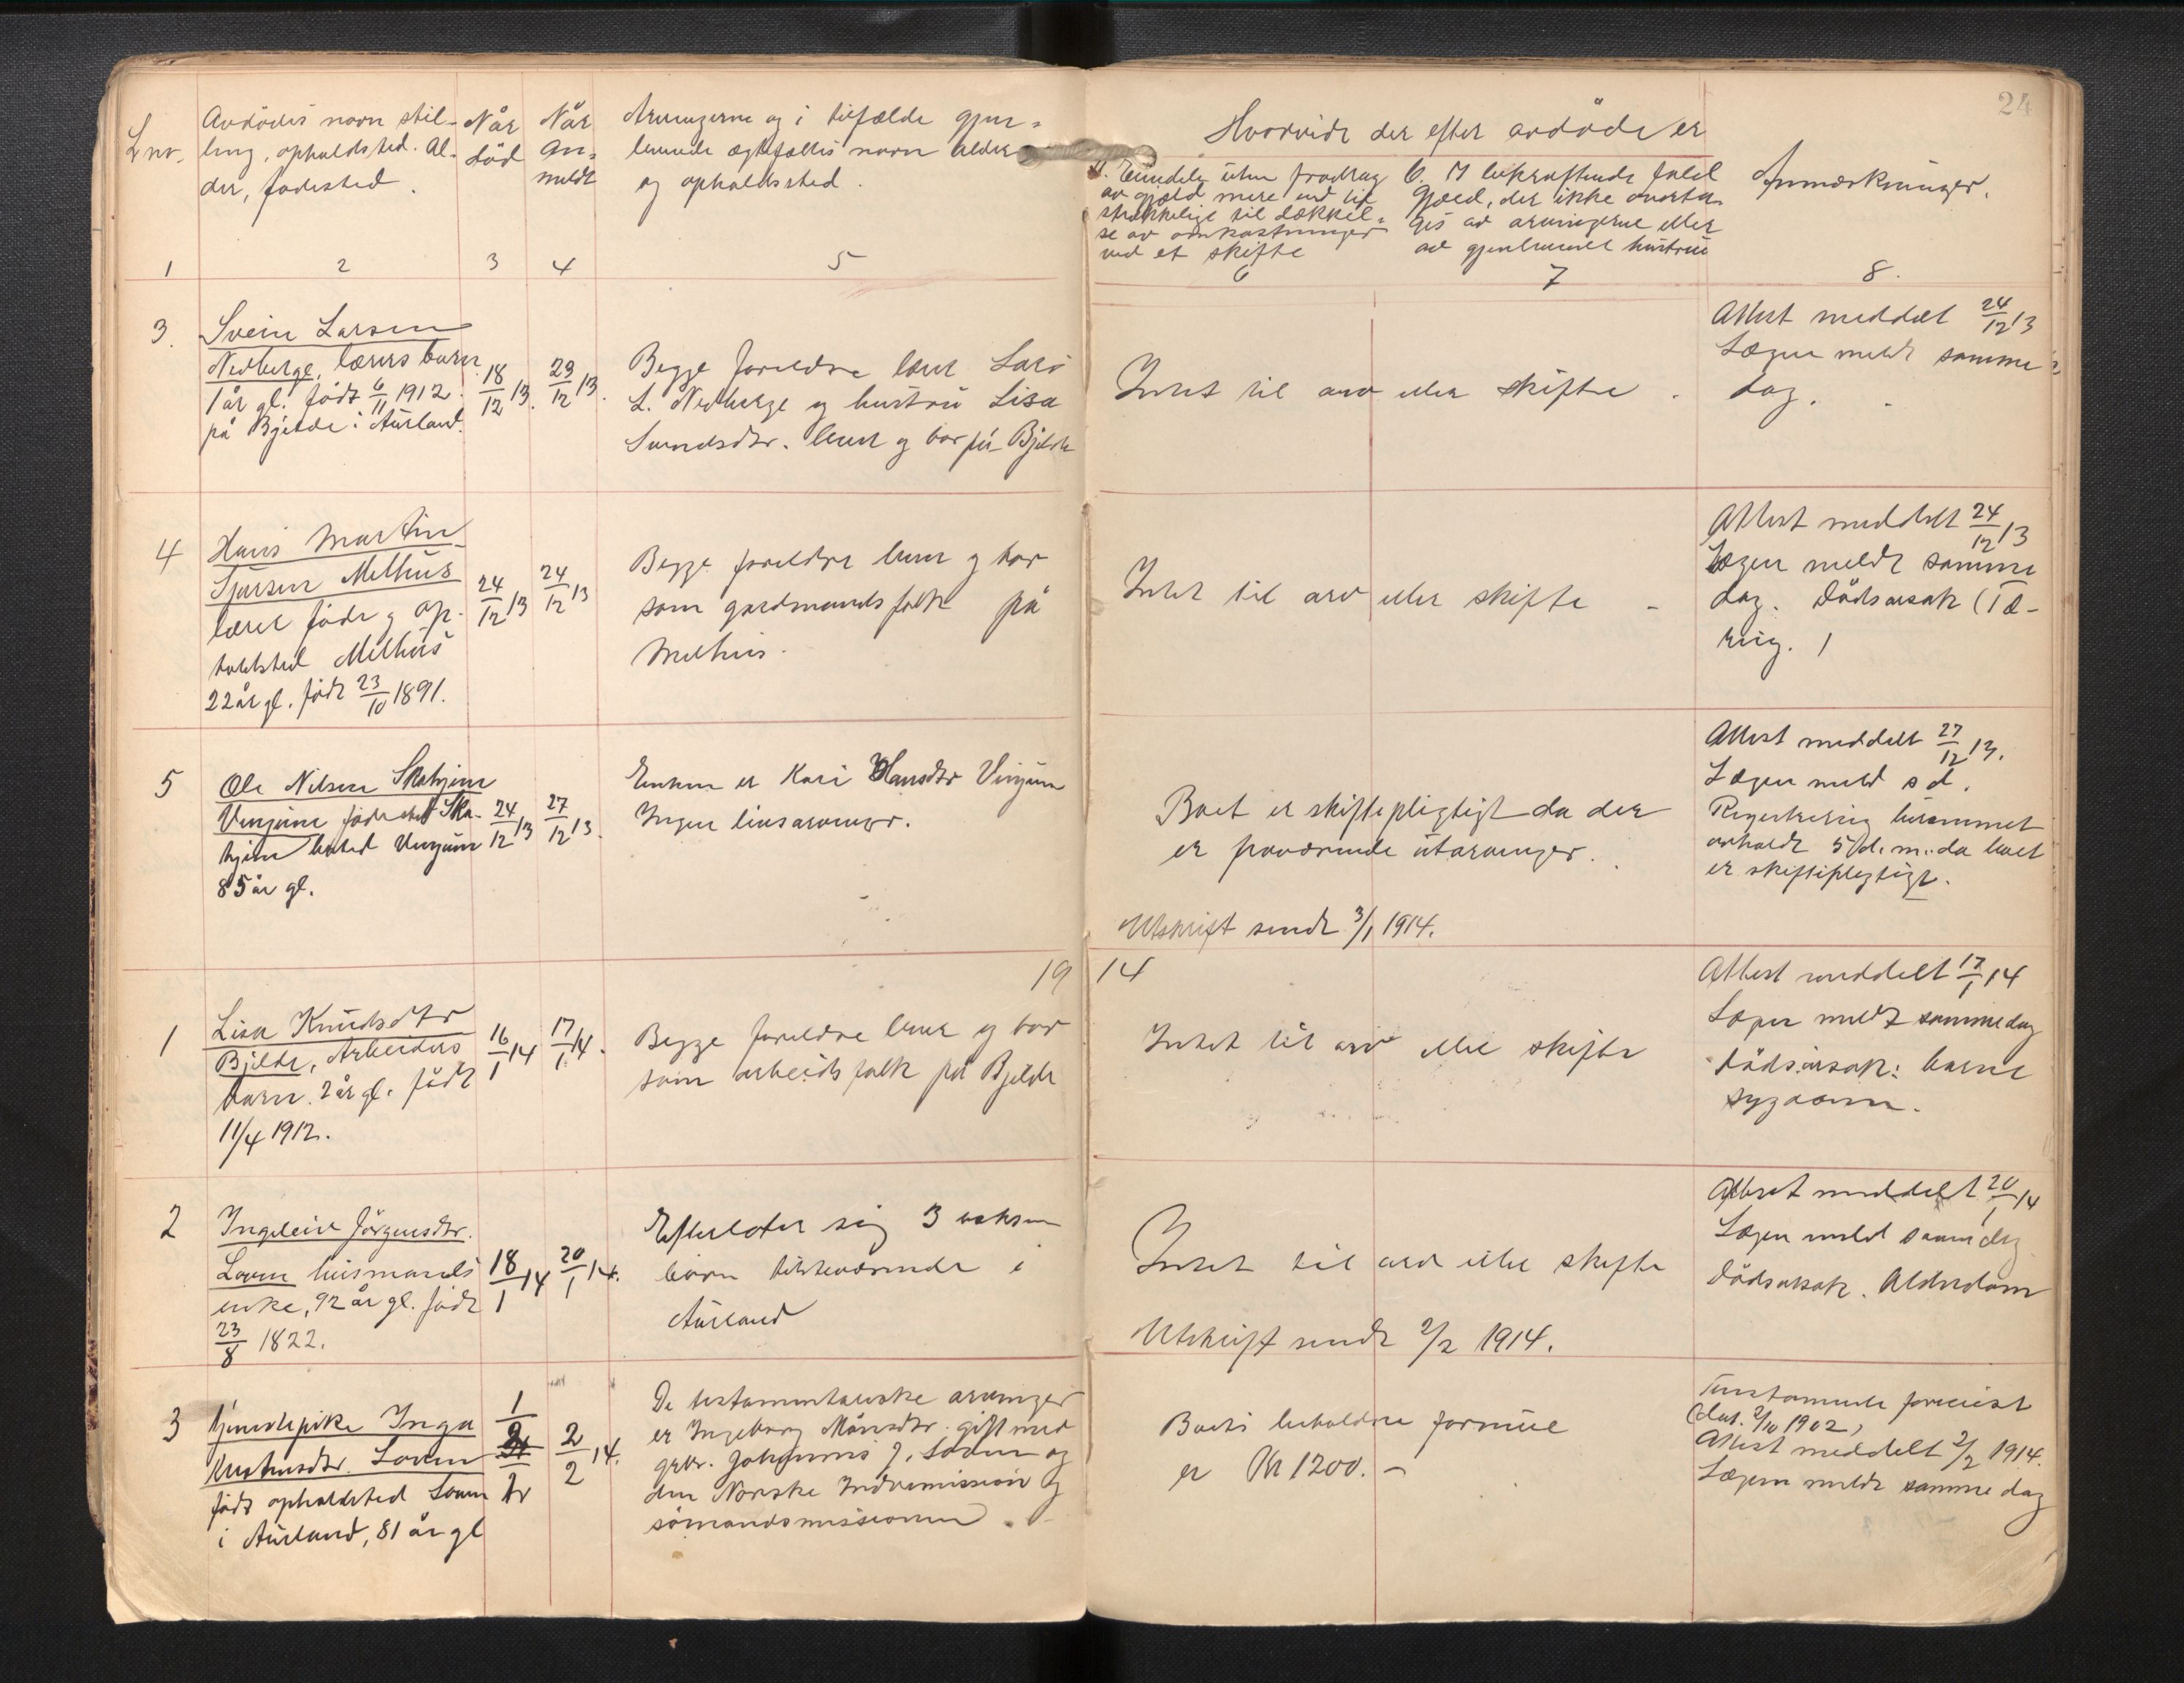 24
L nr.
Avdödes navn stil-
ling, opholdsted. Al-
der, fødested.
Når
död
Når
an-
meldt
Arvingerne og i tilfælde gjen-
levende ægtefælles navn alder
og opholdssted.
Hvorvidt der efter avdöde er
a. Eiendele uten fradrag
av gjæld mere end til
strækkelige til dækkel-
se av omkostninger
ved et skifte
b. I bekræftende fald
Gjæld, der ikke overta-
ges av arvingerne eller
av gjenlevende hustru
Anmærkninger.
1 2 3 4 5 6 7 8.
3.
Svein Larsen
Nedberge, lærers barn
1 år gl. født 6/11 1912
på Bjelde i Aurland.
18/12 13.
23/12 13.
Begge foreldre lærer Lars
L. Nedberge og hustru Lisa
Sveinsdtr. lever og bor på Bjelde
Intet til arv eller skifte.
Attest meddelt 24/12 13
Lægen meldt samme
dag.
4
Hans Martin
Melhus
føde og op-
holdsted Melhus
22 år gl. födt 23/10 1891.
24/12 13
24/12 13
Begge foreldre lever og bor
som gardmandsfolk på
Melhus.
Intet til arv eller skifte -
Attest meddelt 24/12 13
Lægen meldt samme
dag. Dödsarsak (Tæ-
ring.)
5
Ole Nilsen Skahjem
Vinjum fødested Ska-
hjem bosted Vinjum
85 år gl.
24/12 13
27/12 13.
Enken er Kari Hansdtr Vinjum
Ingen livsarvinger.
Boet er skiftepligtigt da der
er fraværende utarvinger.
Utskrift sendt 3/1 1914.
Attest meddelt 27/12 13.
Lægen meld s d.
Registrering berammet
avholdt 5/d. m. da boet
er skiftepligtigt.
1914
1
Lisa Knudsdtr
Bjelde, Arbeiders
barn. 2 år gl. født
11/4 1912.
16/1 14
17/1 14.
Begge foreldre lever og bor
som arbeidsfolk på Bjelde
Intet til arv eller skifte
Attest meddelt 17/1 14
Lægen meldt samme dag
Dödsårsak: barne
sygdom.
2
Ingeleiv Jörgensdtr.
Loven husmands
enke, 92 år gl. födt
23/8 1822.
18/1 14
20/1 14.
Efterlater sig 3 voksne
börn tilstedværende i
Aurland
Intet til arv eller skifte
Utskrift sendt 2/2 1914.
Attest meddelt 20/1 14
Lægen meldt samme dag
Dödsarsak. Alderdom
3
Tjenestepike Inga
Loven
född opholdsted Loven
i Aurland, 81 år gl
1/2
2/2 14.
De testamentariske arvinger
er Ingeborg Månsdtr. gift med
gbr. Johannes J. Loven og
den Norske Indremission og
sömandsmissionen.
Boets beholdne formue
er Kr 1200. -
Testamente forevist
(dat. 2/10 1902)
Attest meddelt 2/2 1914.
Lægen meldt samme dag